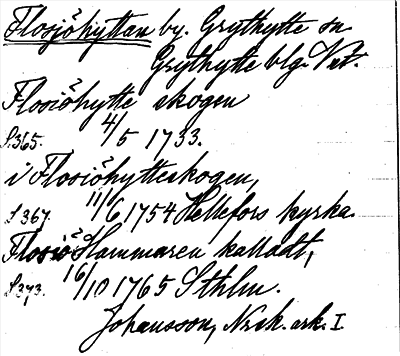 Flosjöhyttan by. Grythytte sn
Grythytte blg. Vstm.
Flosiöhytte skogen
S.365. 4/5 1733.
i Flosiöhytteskogen,
S 367. 11/6 1754 Hellefors kyrka.
Flosiö Hammaren kalladt,
S.373. 16/10 1765 Sthlm.
Johansson, Nrsk. ark. I